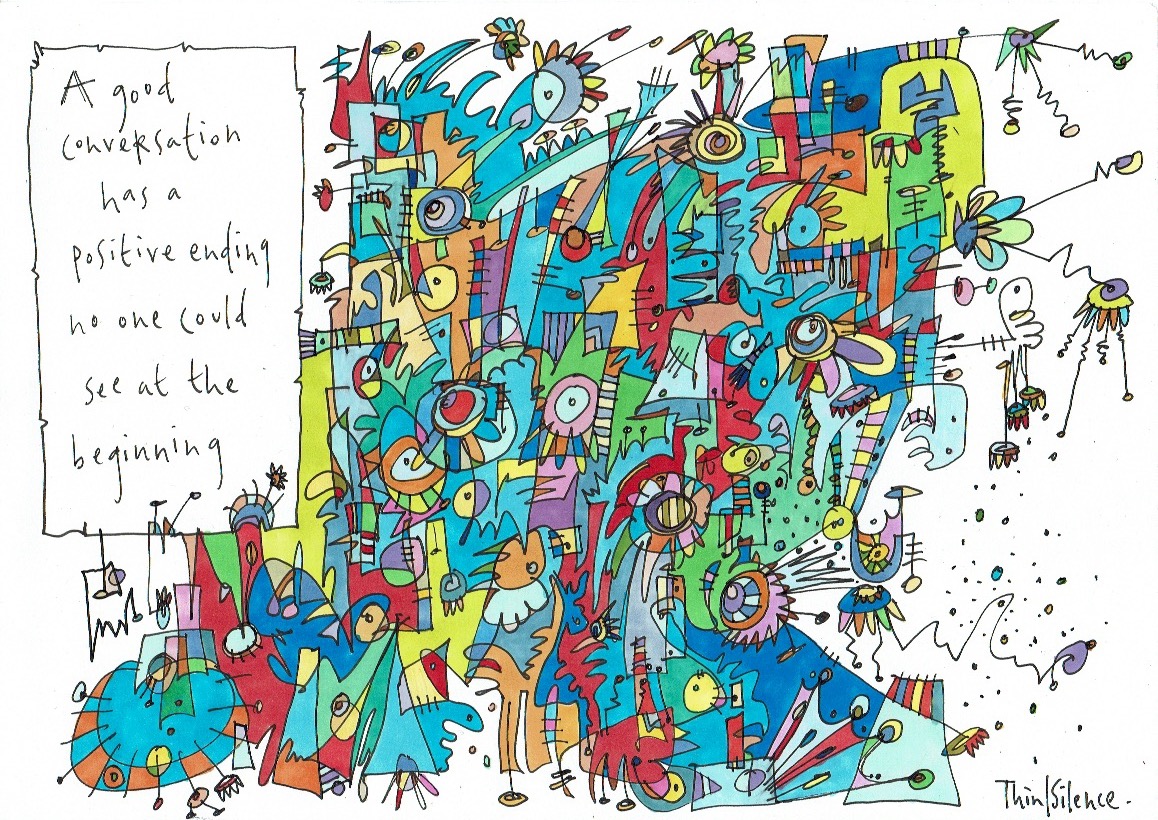 A good
conversation
has a
positive ending
no one could
see at the
beginning
Thin|Silence.